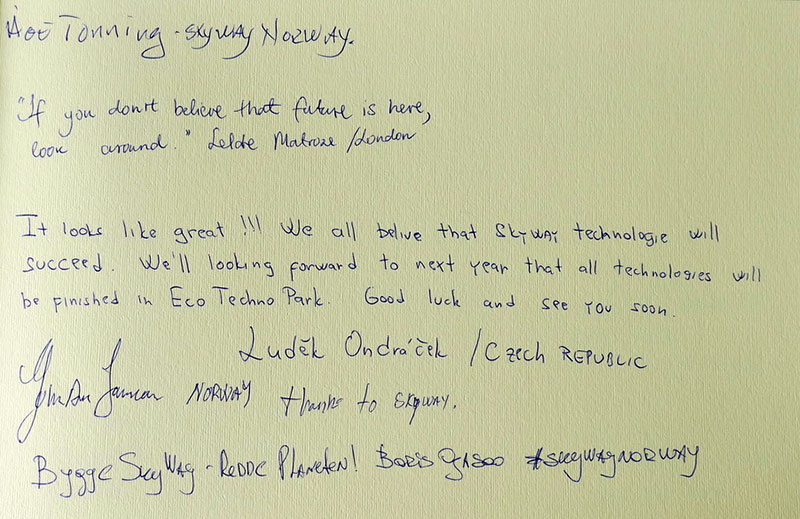 Tonning - SKYWAY NORWAY.
"If you don't believe that future is here,
look around." Lelde Matroze /London
It looks like great !!! We all belive that SKYWAY technologie will
succeed. We'll looking forward to next year that all technologies will
be finished in Eco Techno Park. Good luck and see you soon.
Luděk Ondráček /Czech REPUBLIC
NORWAY thanks to SKYWAY.
Bygge SkyWay - Redde Planeten! Boris #SKYWAYNORWAY